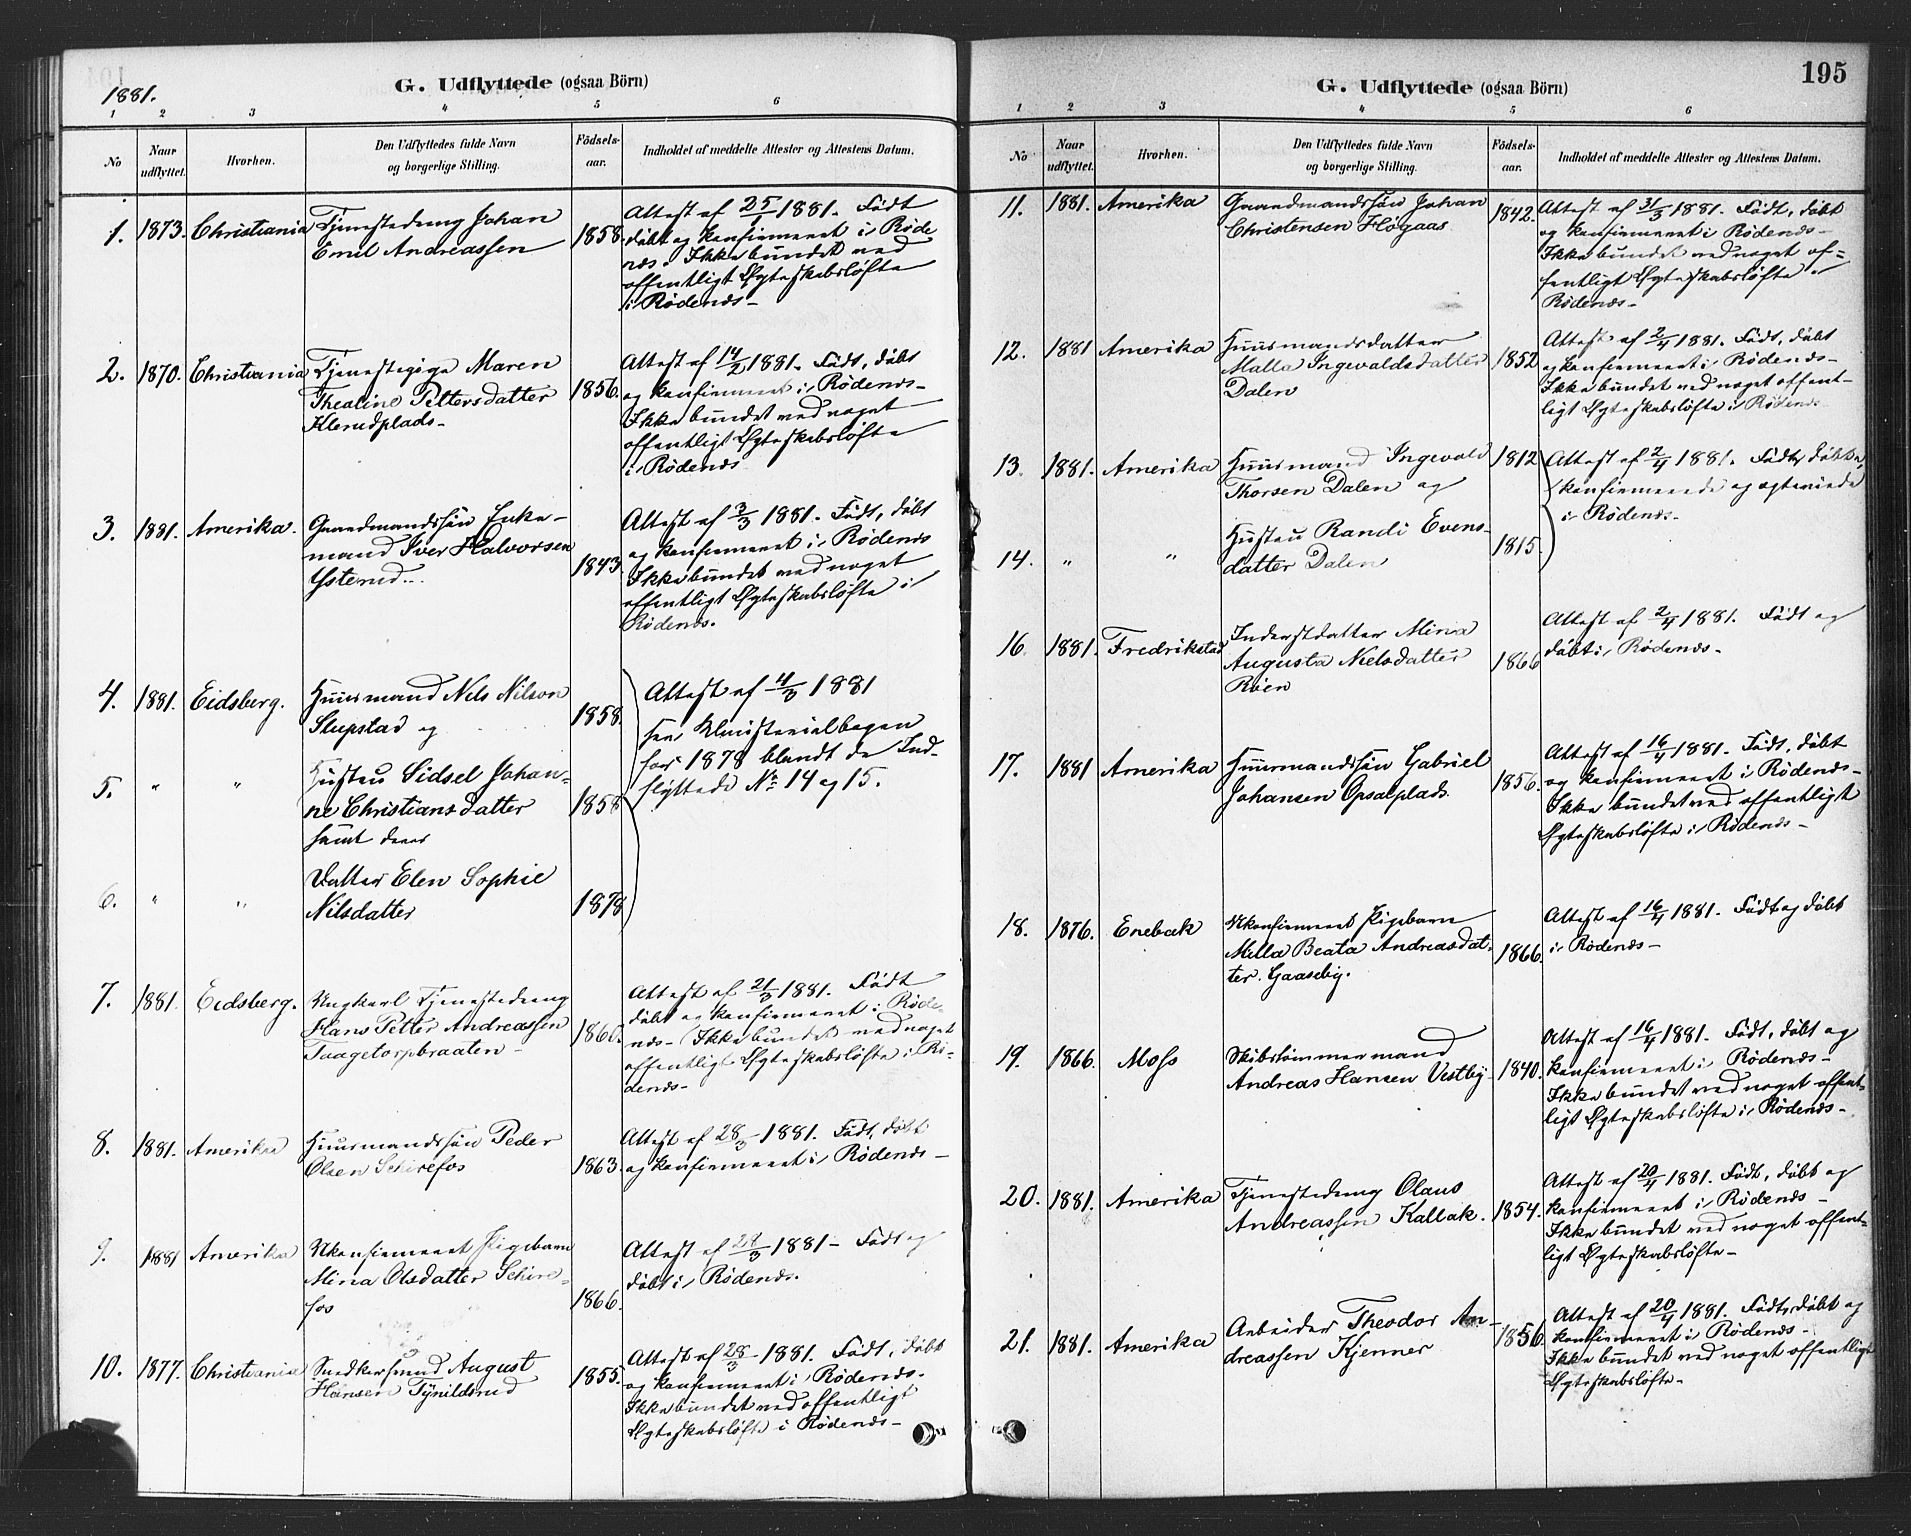 1881.
G. Udflyttede (ogsaa Börn)
1 2 3 4 5 6
No
Naar udflyttet.
Hvorhen.
Den Udflyttedes fulde Navn og borgerlige Stilling.
Födsels-aar.
Indholdet af meddelte Attester og Attestens Datum.
1. 1873. Christiania Tjenestedreng Johan
Emil Andreassen
1858.
Attest af 25/1 1881. Født
døbt og konfirmeret i Røde
næs. Ikke bundet ved
offentligt Ægteskabsløfte
i Rødenæs-
2. 1870. Christiania Tjenestepige Maren
Thealine Pettersdatter
Klerudplads-
1856.
Attest af 14/2 1881. Født, døbt
og konfirmeret i Rødenæs-
Ikke bundet ved noget
offentligt Ægteskabsløfte
i Rødenæs
3. 1881. Amerika. Gaardmandssøn Enke-
mand Iver Halvorsen
Ysterud..
1843.
Attest af 3/3 1881. Født, døbt
og konfirmeret i Rødenæs
Ikke bundet ved noget
offentligt Ægteskabsløfte i
Rødenæs.
4. 1881. Eidsberg. Huusmand Nils Nilson
Slupstad og
1858.
5. " " Hustru Sidsel Johan-
ne Christiansdatter
samt deres
1858
6. " " Datter Elen Sophie
Nilsdatter
1878
Attest af 4/3 1881
see Ministerialbogen
for 1878 blandt de Ind-
flyttede No 14 og 15.
7. 1881. Eidsberg. Ungkarl Tjenestedreng
Hans Petter Andreassen
Taagetorpbraaten-
1860.
Attest af 21/3 1881. Født
døbt og konfirmeret i Røde-
næs- Ikke bundet ved noget
offentligt Ægteskabsløfte i Rø-
denæs-
8. 1881. Amerika Huusmandssøn Peder
Olsen Schirefos
1863.
Attest af 28/3 1881. Født, døbt
og konfirmeret i Rødenæs-
9. 1881 Amerika Ukonfirmeret Pigebarn
Mina Olsdatter Schire-
fos
1866.
Attest af 28/3 1881- Født og
døbt i Rødenæs.
10. 1877. Christiania Snedkersvend August
Hansen Tynildsrud
1855.
Attest af 28/3 1881. Født, døbt
og konfirmeret i Rødenæs.
Ikke bundet ved offentligt
Ægteskabsløfte i Rødenæs-
G. Udflyttede (ogsaa Börn)
195
1 2 3 4 5 6
No
Naar udflyttet.
Hvorhen.
Den Udflyttedes fulde Navn og borgerlige Stilling.
Födsels-aar.
Indholdet af meddelte Attester og Attestens Datum.
11. 1881. Amerika Gaardmandssøn Johan
Christensen Høgaas
1842.
Attest af 31/3 1881. Født, døbt
og konfirmeret i Rødenæs-
Ikke bundet ved noget of-
fentligt Ægteskabsløfte i
Rødenæs-
12. 1881 Amerika Huusmandsdatter
Malla Ingevaldsdatter
Dalen
1852
Attest af 2/4 1881. Født, døbt
og konfirmeret i Rødenæs-
Ikke bundet ved noget offent-
ligt Ægteskabsløfte i Rødenæs
13. 1881. Amerika Huusmand Ingevald
Thorsen Dalen og
1812
14. " " Hustru Randi Evens-
datter Dalen
1815.
Attest af 2/4 1881. Født, døbte,
konfirmerede og egteviede
i Rødenæs.
16. 1881. Fredrikstad Inderstdatter Mina
Augusta Nielsdatter
Røen
1866
Attest af 2/4 1881. Født og
døbt i Rødenæs-
17. 1881 Amerika Huusmandssøn Gabriel
Johansen Opsalplads.
1856.
Attest af 16/4 1881. Født, døbt
og konfirmeret i Rødenæs-
Ikke bundet ved offentligt
Ægteskabsløfte i Rødenæs-
18. 1876. Enebak Ukonfirmeret Pigebarn
Milla Beata Andreasdat-
ter. Gaaseby.
1866.
Attest af 16/4 1881. Født og døbt
i Rødenæs-
19. 1866. Moss Skibstømmermand
Andreas Hansen Vestby-
1840.
Attest af 16/4 1881. Født, døbt og
konfirmeret i Rødenæs-
Ikke bundet ved noget offent-
ligt Ægteskabsløfte i Rødenæs-
20. 1881. Amerika Tjenestedreng Olaus
Andreassen Kallak.
1854.
Attest af 20/4 1881. Født, døbt og
konfirmeret i Rødenæs-
Ikke bundet ved noget offent-
ligt Ægteskabsløfte-
21. 1881. Amerika Arbeider Theodor An-
dreassen Kjenner
1856.
Attest af 20/4 1881. Født, døbt og
konfirmeret i Rødenæs-
Ikke bundet ved noget offentligt
Ægteskabsløfte-